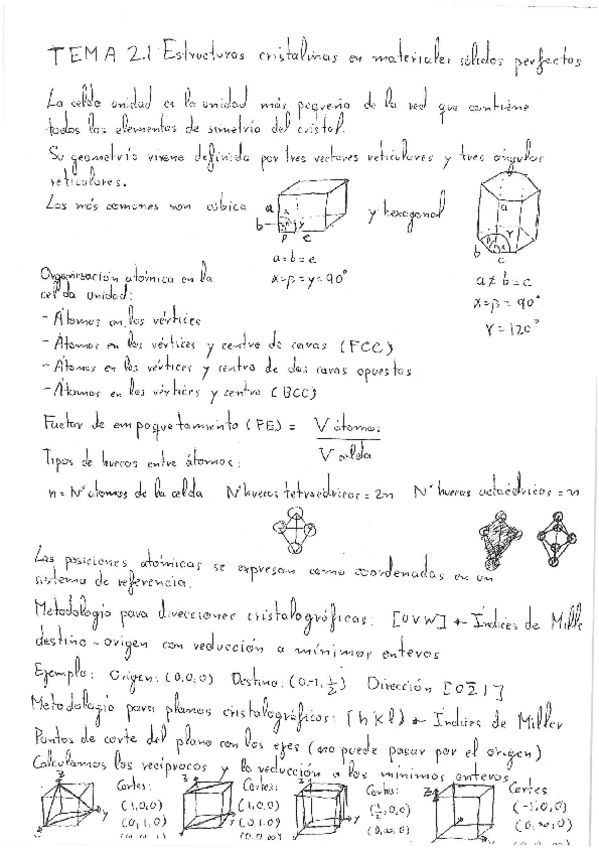 TEMA 2.1 Estructuras cristalinas en materiales sólidos perfectos
La celda unidad es la unidad más pequeña de la red que contiene
todos los elementos de simetría del cristal.
Su geometría viene definida por tres vectores reticulares y tres ángulos
reticulares.
Las más comunes son cúbica y hexagonal
a b c
a b c
a=b=c
α=β=γ=90°
a≠b=c
α=β=90°
γ=120°
Organización atómica en la
celda unidad:
- Átomos en los vértices
- Átomos en los vértices y centro de caras (FCC)
- Átomos en los vértices y centro de dos caras opuestas
- Átomos en los vértices y centro (BCC)
Factor de empaquetamiento (FE) = V átomos / V celda
Tipos de huecos entre átomos:
n = Nº átomos de la celda Nº huecos tetraédricos = 2n Nº huecos octaédricos = n
Las posiciones atómicas se expresan como coordenadas en un
sistema de referencia.
Metodología para direcciones cristalográficas: [UVW] ← Índices de Mille
destino - origen con reducción a mínimos enteros
Ejemplo: Origen: (0,0,0) Destino: (0,-1,½) Dirección [02̄1]
Metodología para planos cristalográficos: (hkl) ← Índices de Miller
Puntos de corte del plano con los ejes (no puede pasar por el origen)
Calculamos los recíprocos y la reducción a los mínimos enteros
Cortes: Cortes: Cortes: Cortes
(1,0,0) (1,0,0) (½,0,0) (-1,0,0)
(0,1,0) (0,1,0) (0,∞,0) (0,∞,0)